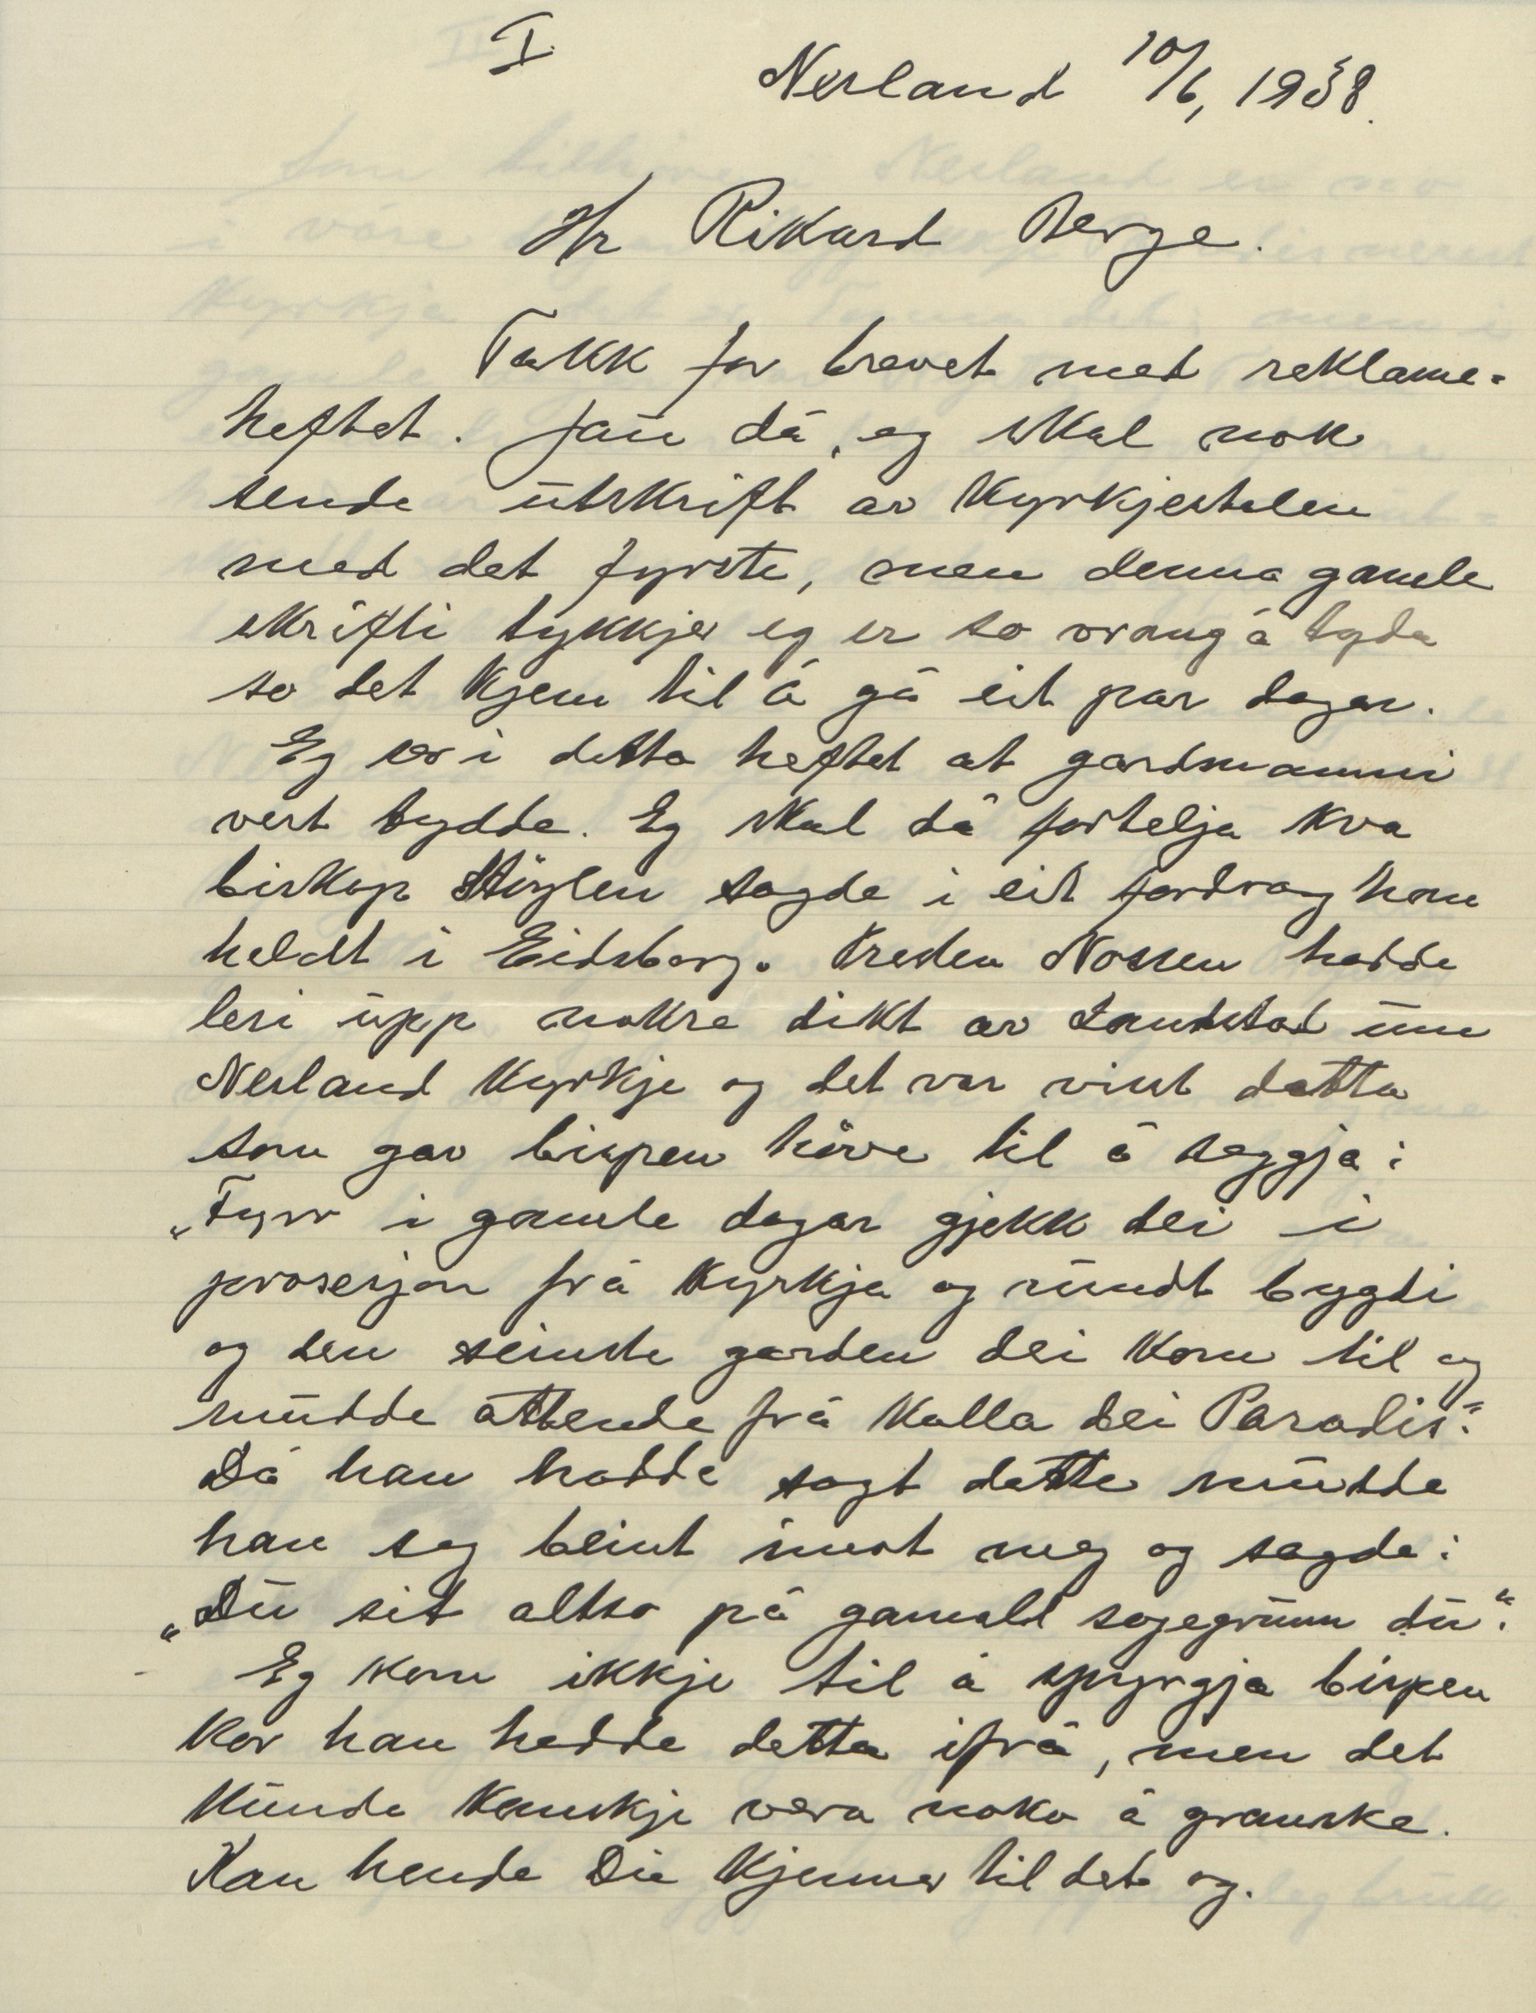 I
Nesland 10/6, 1938.
Hr Rikard Berge.
Takk for brevet med reklame-
heftet. Jau då, eg skal nok
senda utskrift av kyrkjestolen
med det fyrste, men denna gamle
skrifti tykkjer eg er so vrang å tyda
so det kjem til å gå eit par dagar.
Eg ser i detta heftet at gardsnamni
vert tydde. Eg skal då fortelja kva
biskop Støylen sagde i eit fordrag han
heldt i Eidsborg. Presten Nossen hadde
lesi upp nokre dikt av Landstad um
Nesland kyrkje og det var visst detta
som gav bispen høve til å seggja:
„Fyrr i gamle dagar gjekk dei i
prosesjon frå kyrkja og rundt bygdi
og den seinste garden dei kom til og
snudde attende frå kalla dei Paradis“.
Då han hadde sagt dette snudde
han seg beint imot meg og sagde:
„Du sit altso på gamald sogegrunn du“.
Eg kom ikkje til å spyrgja bispen
kor han hadde detta ifrå, men det
kunde kanskje vera noko å granske.
Kan hende Du kjenner til det og.